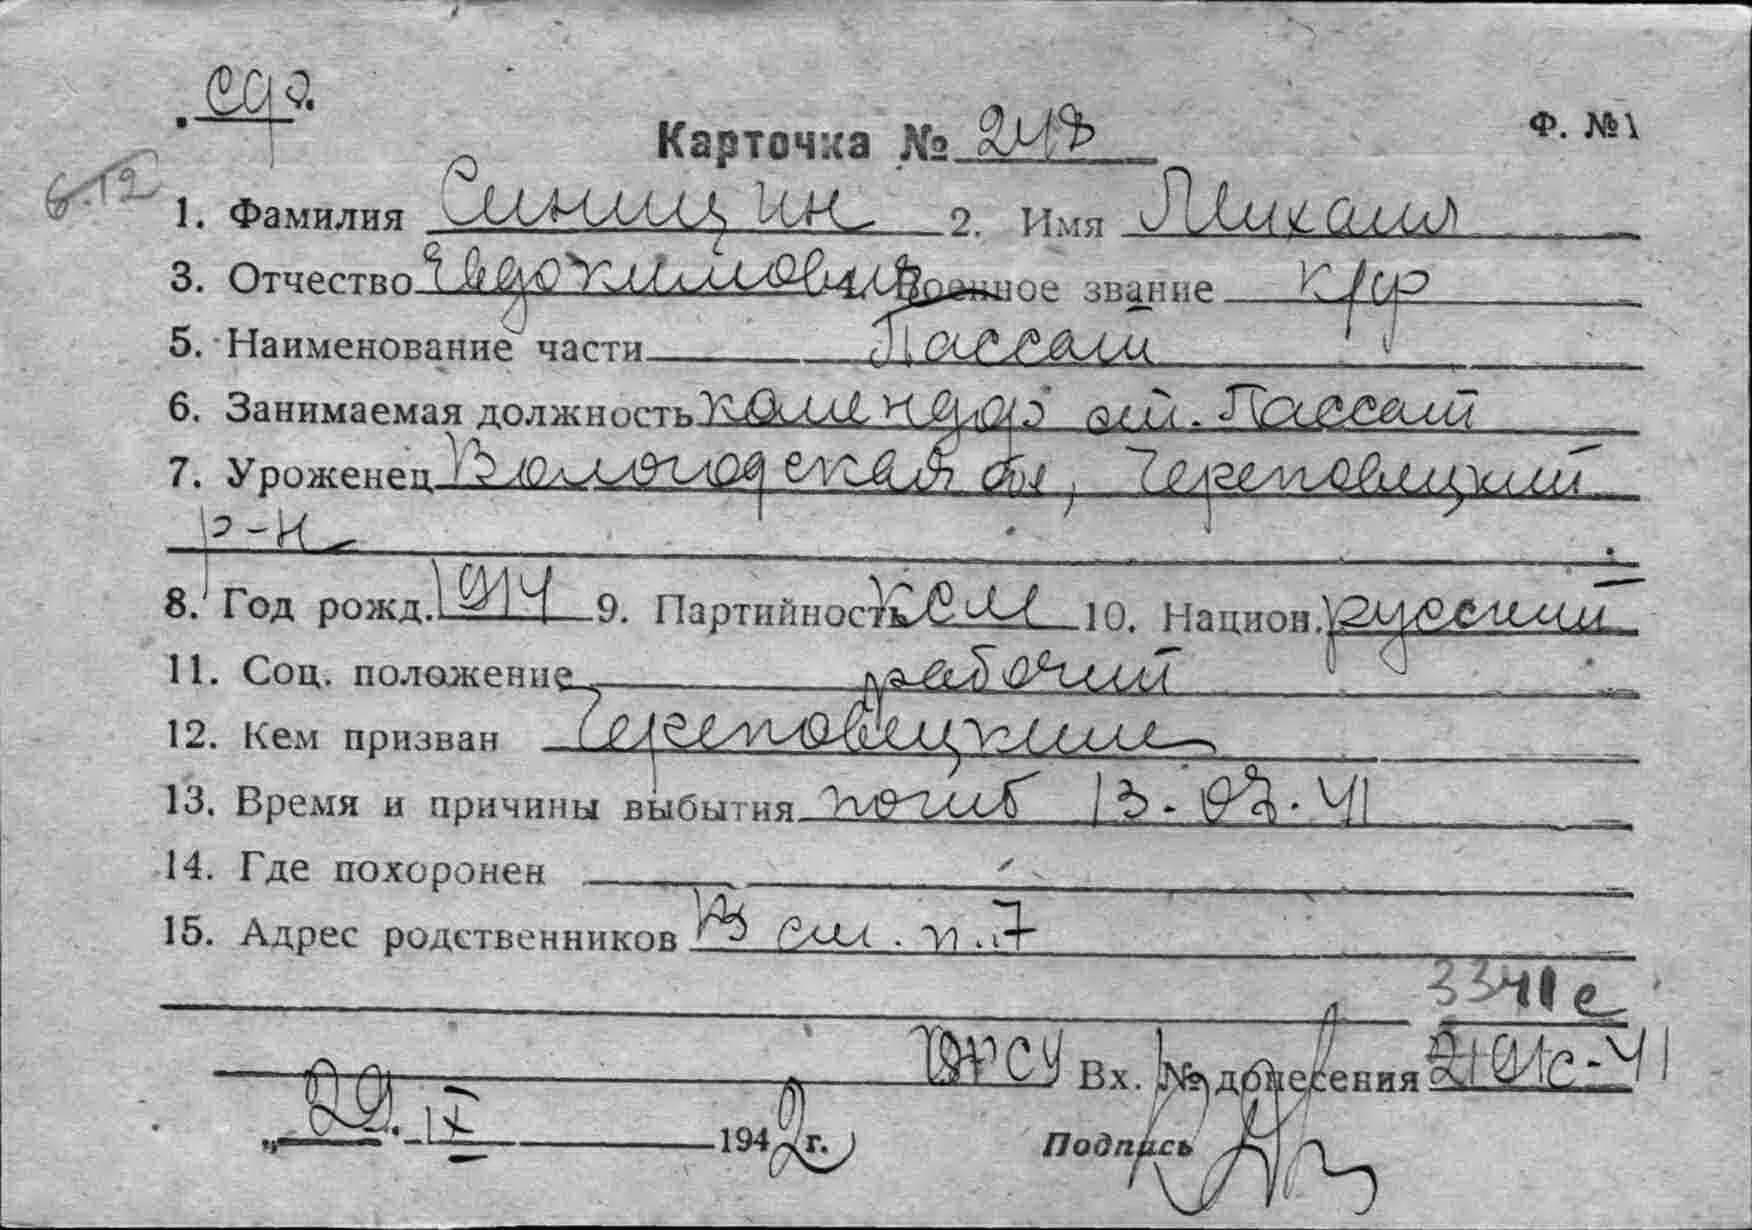 СФ.
Карточка № 248 Ф. №1
6.12
1. Фамилия Синицин 2. Имя Михаил
3. Отчество Евдокимович 4. Военное звание К/ф
5. Наименование части Пассат
6. Занимаемая должность комендор эм. Пассат
7. Уроженец Вологодская обл, Череповецкий
р-н
8. Год рожд. 1914 9. Партийность ксм 10. Национ. русский
11. Соц. положение рабочий
12. Кем призван Череповецким
13. Время и причины выбытия погиб 13.07.41
14. Где похоронен
15. Адрес родственников В см. п. 7
3341с
Вх. № донесения 2191с-41
„29“ IX 1942 г. Подпись